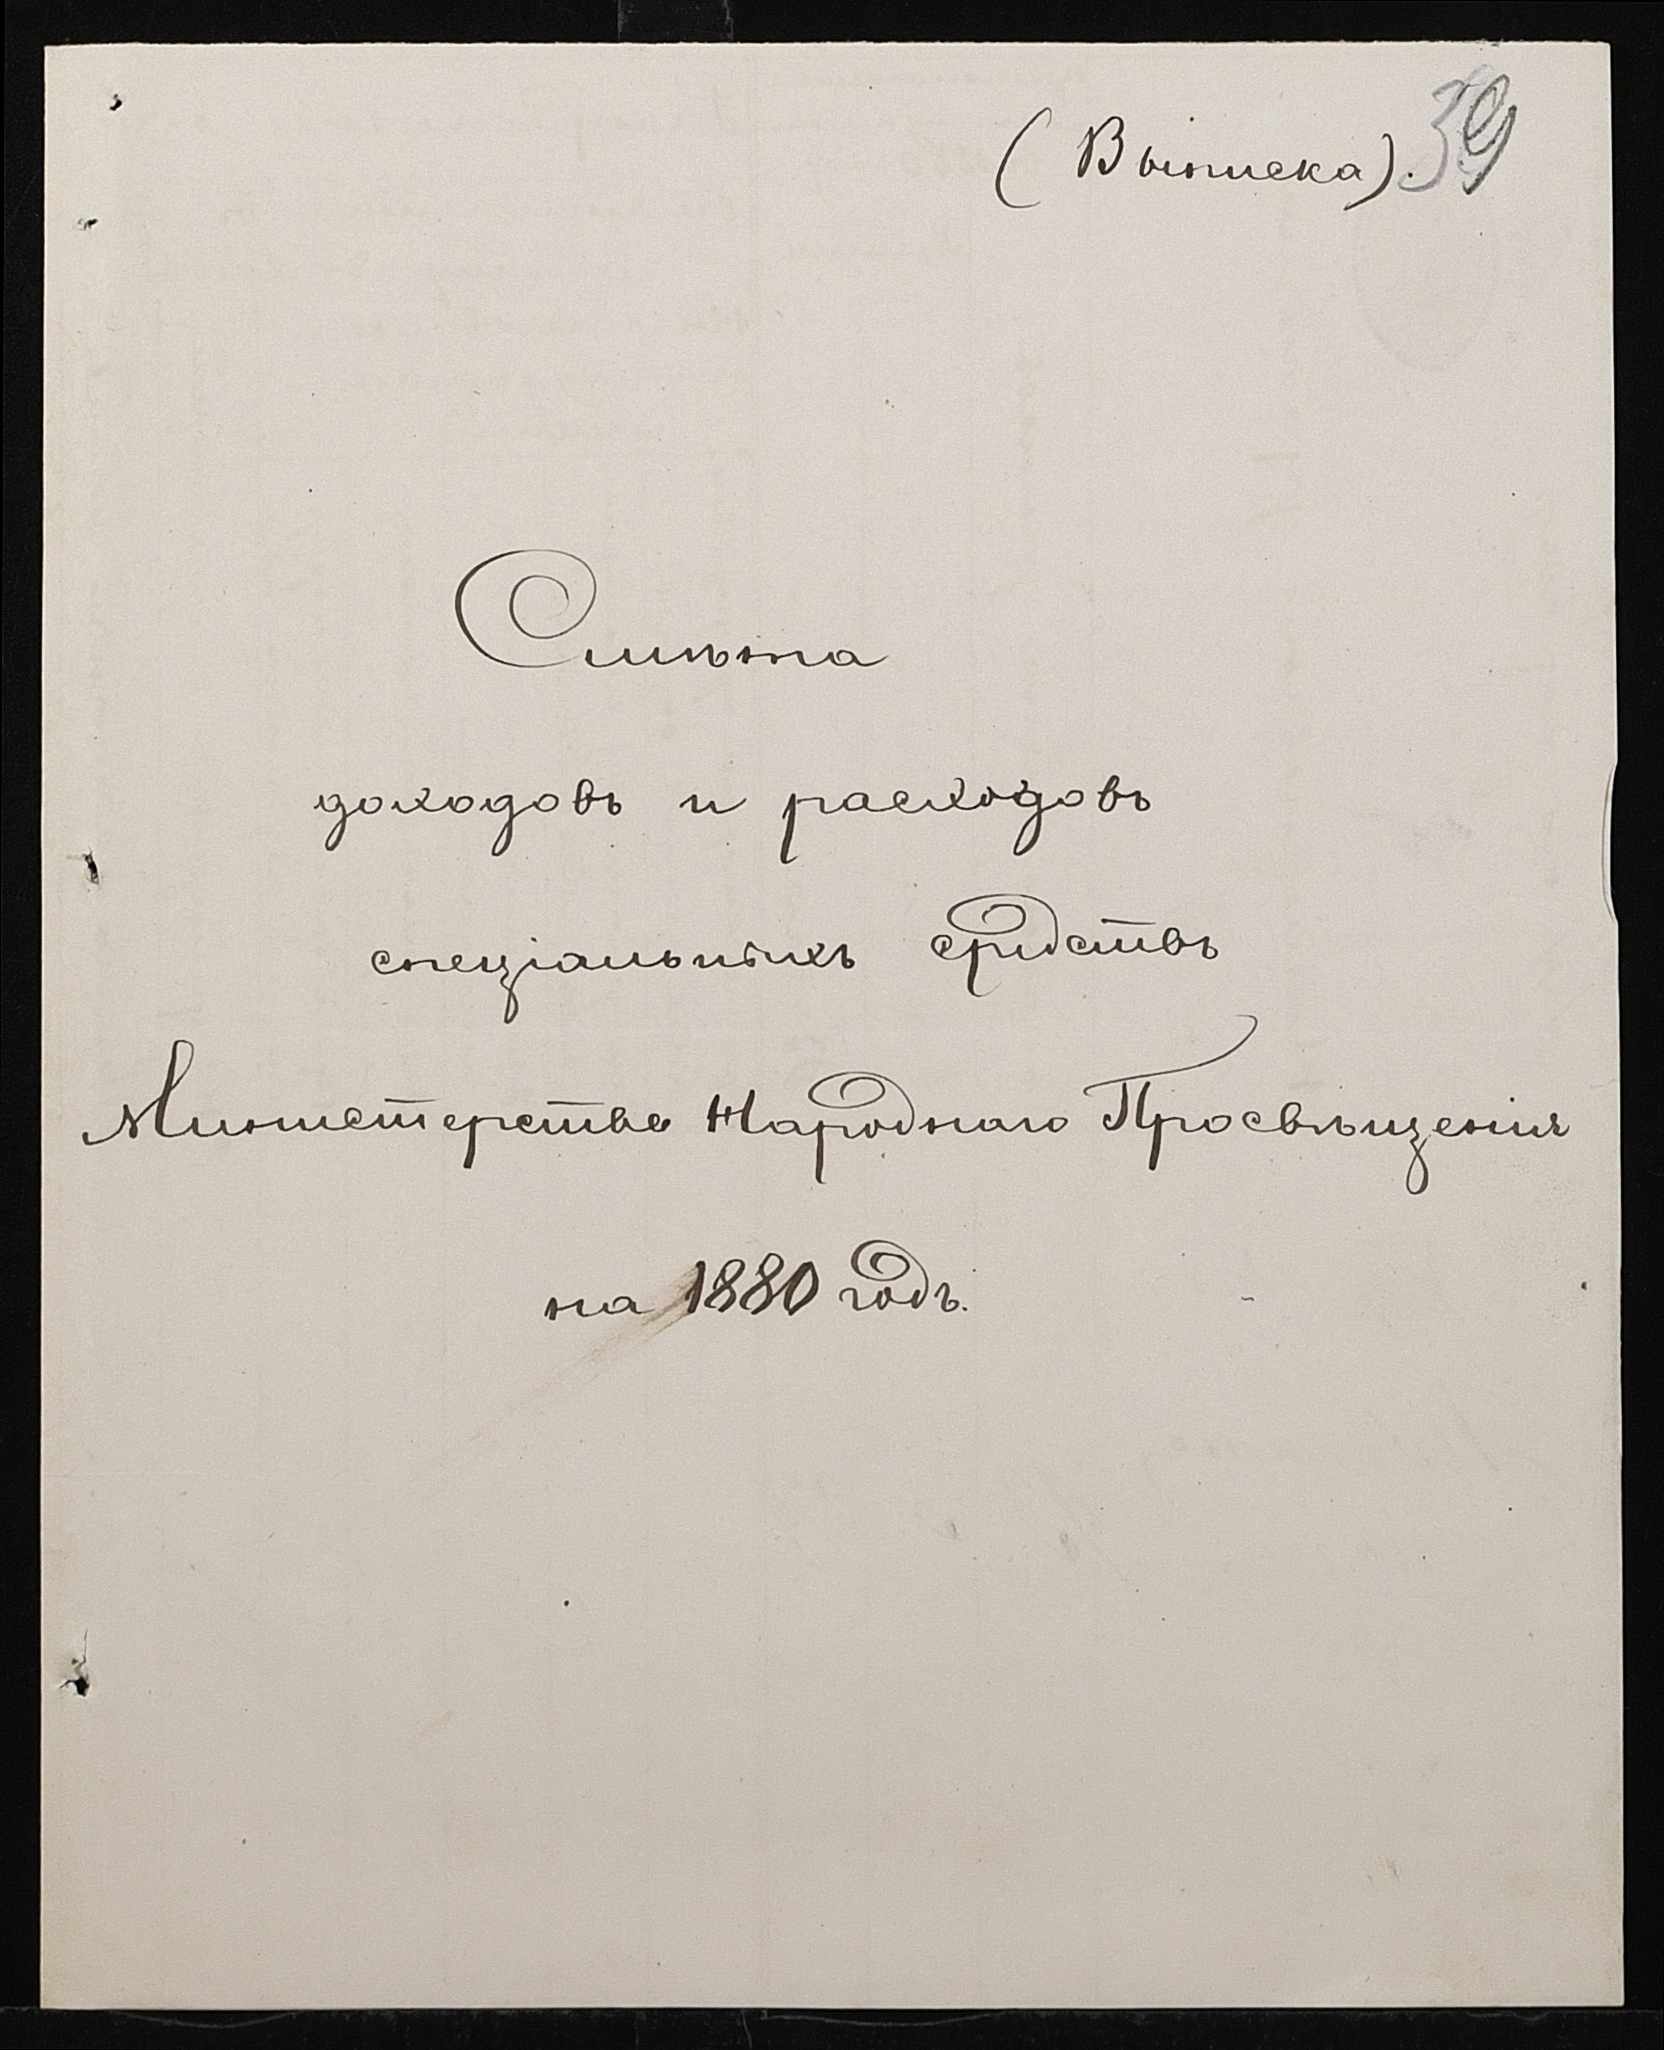 (Выписка). 39
Смѣта
доходовъ и расходовъ
спеціальныхъ средствъ
Министерства Народнаго Просвѣщенія
на 1880 годъ.